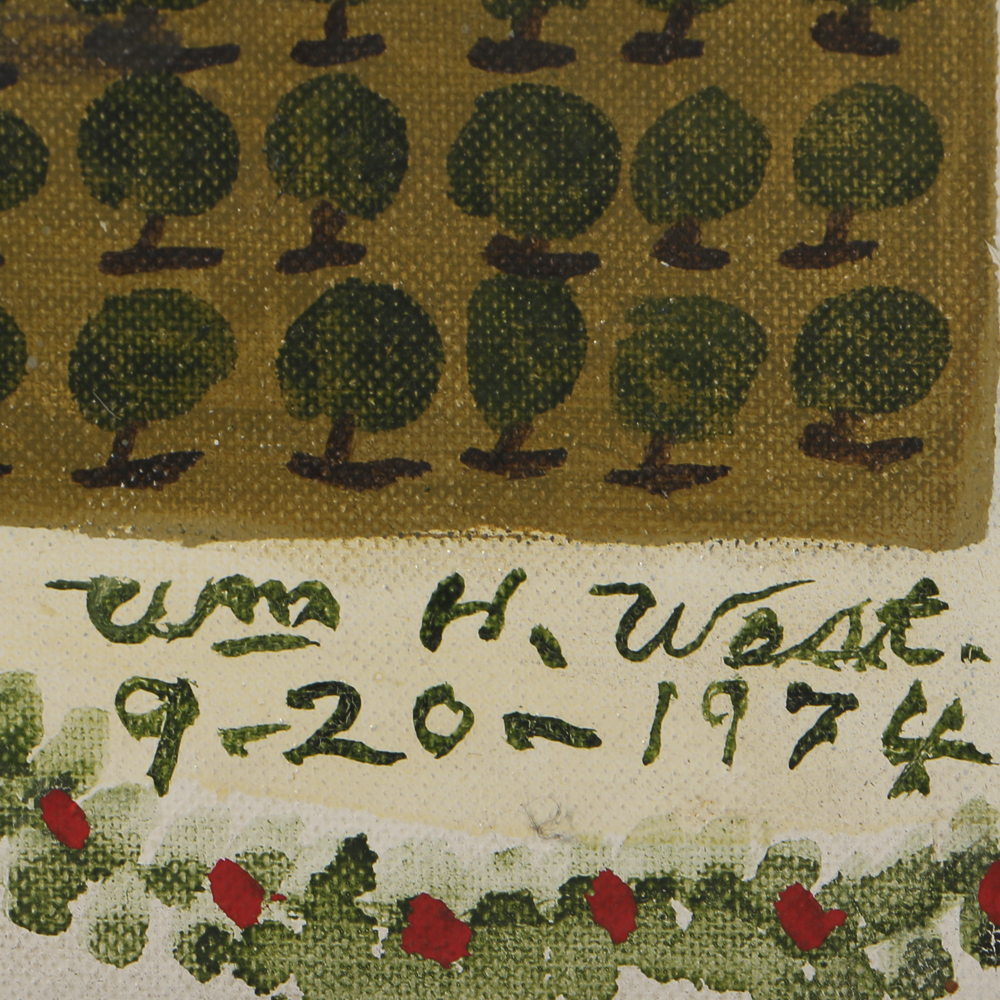 Wm H. West.
9-20-1974